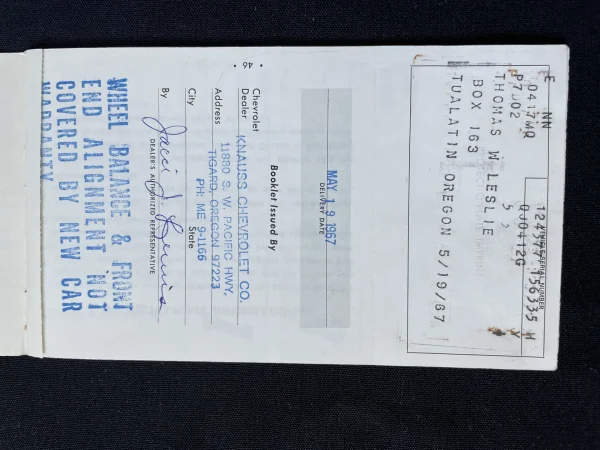 E NN
VEHICLE SERIAL NUMBER
0417MQ 124
156335 H
P7 02 5 2 QJ0412G Y
THOMAS W LESLIE
BOX 163
TUALATIN OREGON 5/19/67
MAY 19 1967
DELIVERY DATE
Booklet Issued By
Chevrolet Dealer KNAUSS CHEVROLET CO.
11880 S. W. PACIFIC HWY.
Address TIGARD, OREGON 97223
City State
PH: ME 9-1166
By
DEALER'S AUTHORIZED REPRESENTATIVE
WHEEL BALANCE & FRONT
END ALIGNMENT NOT
COVERED BY NEW CAR
WARRANTY
• 46 •